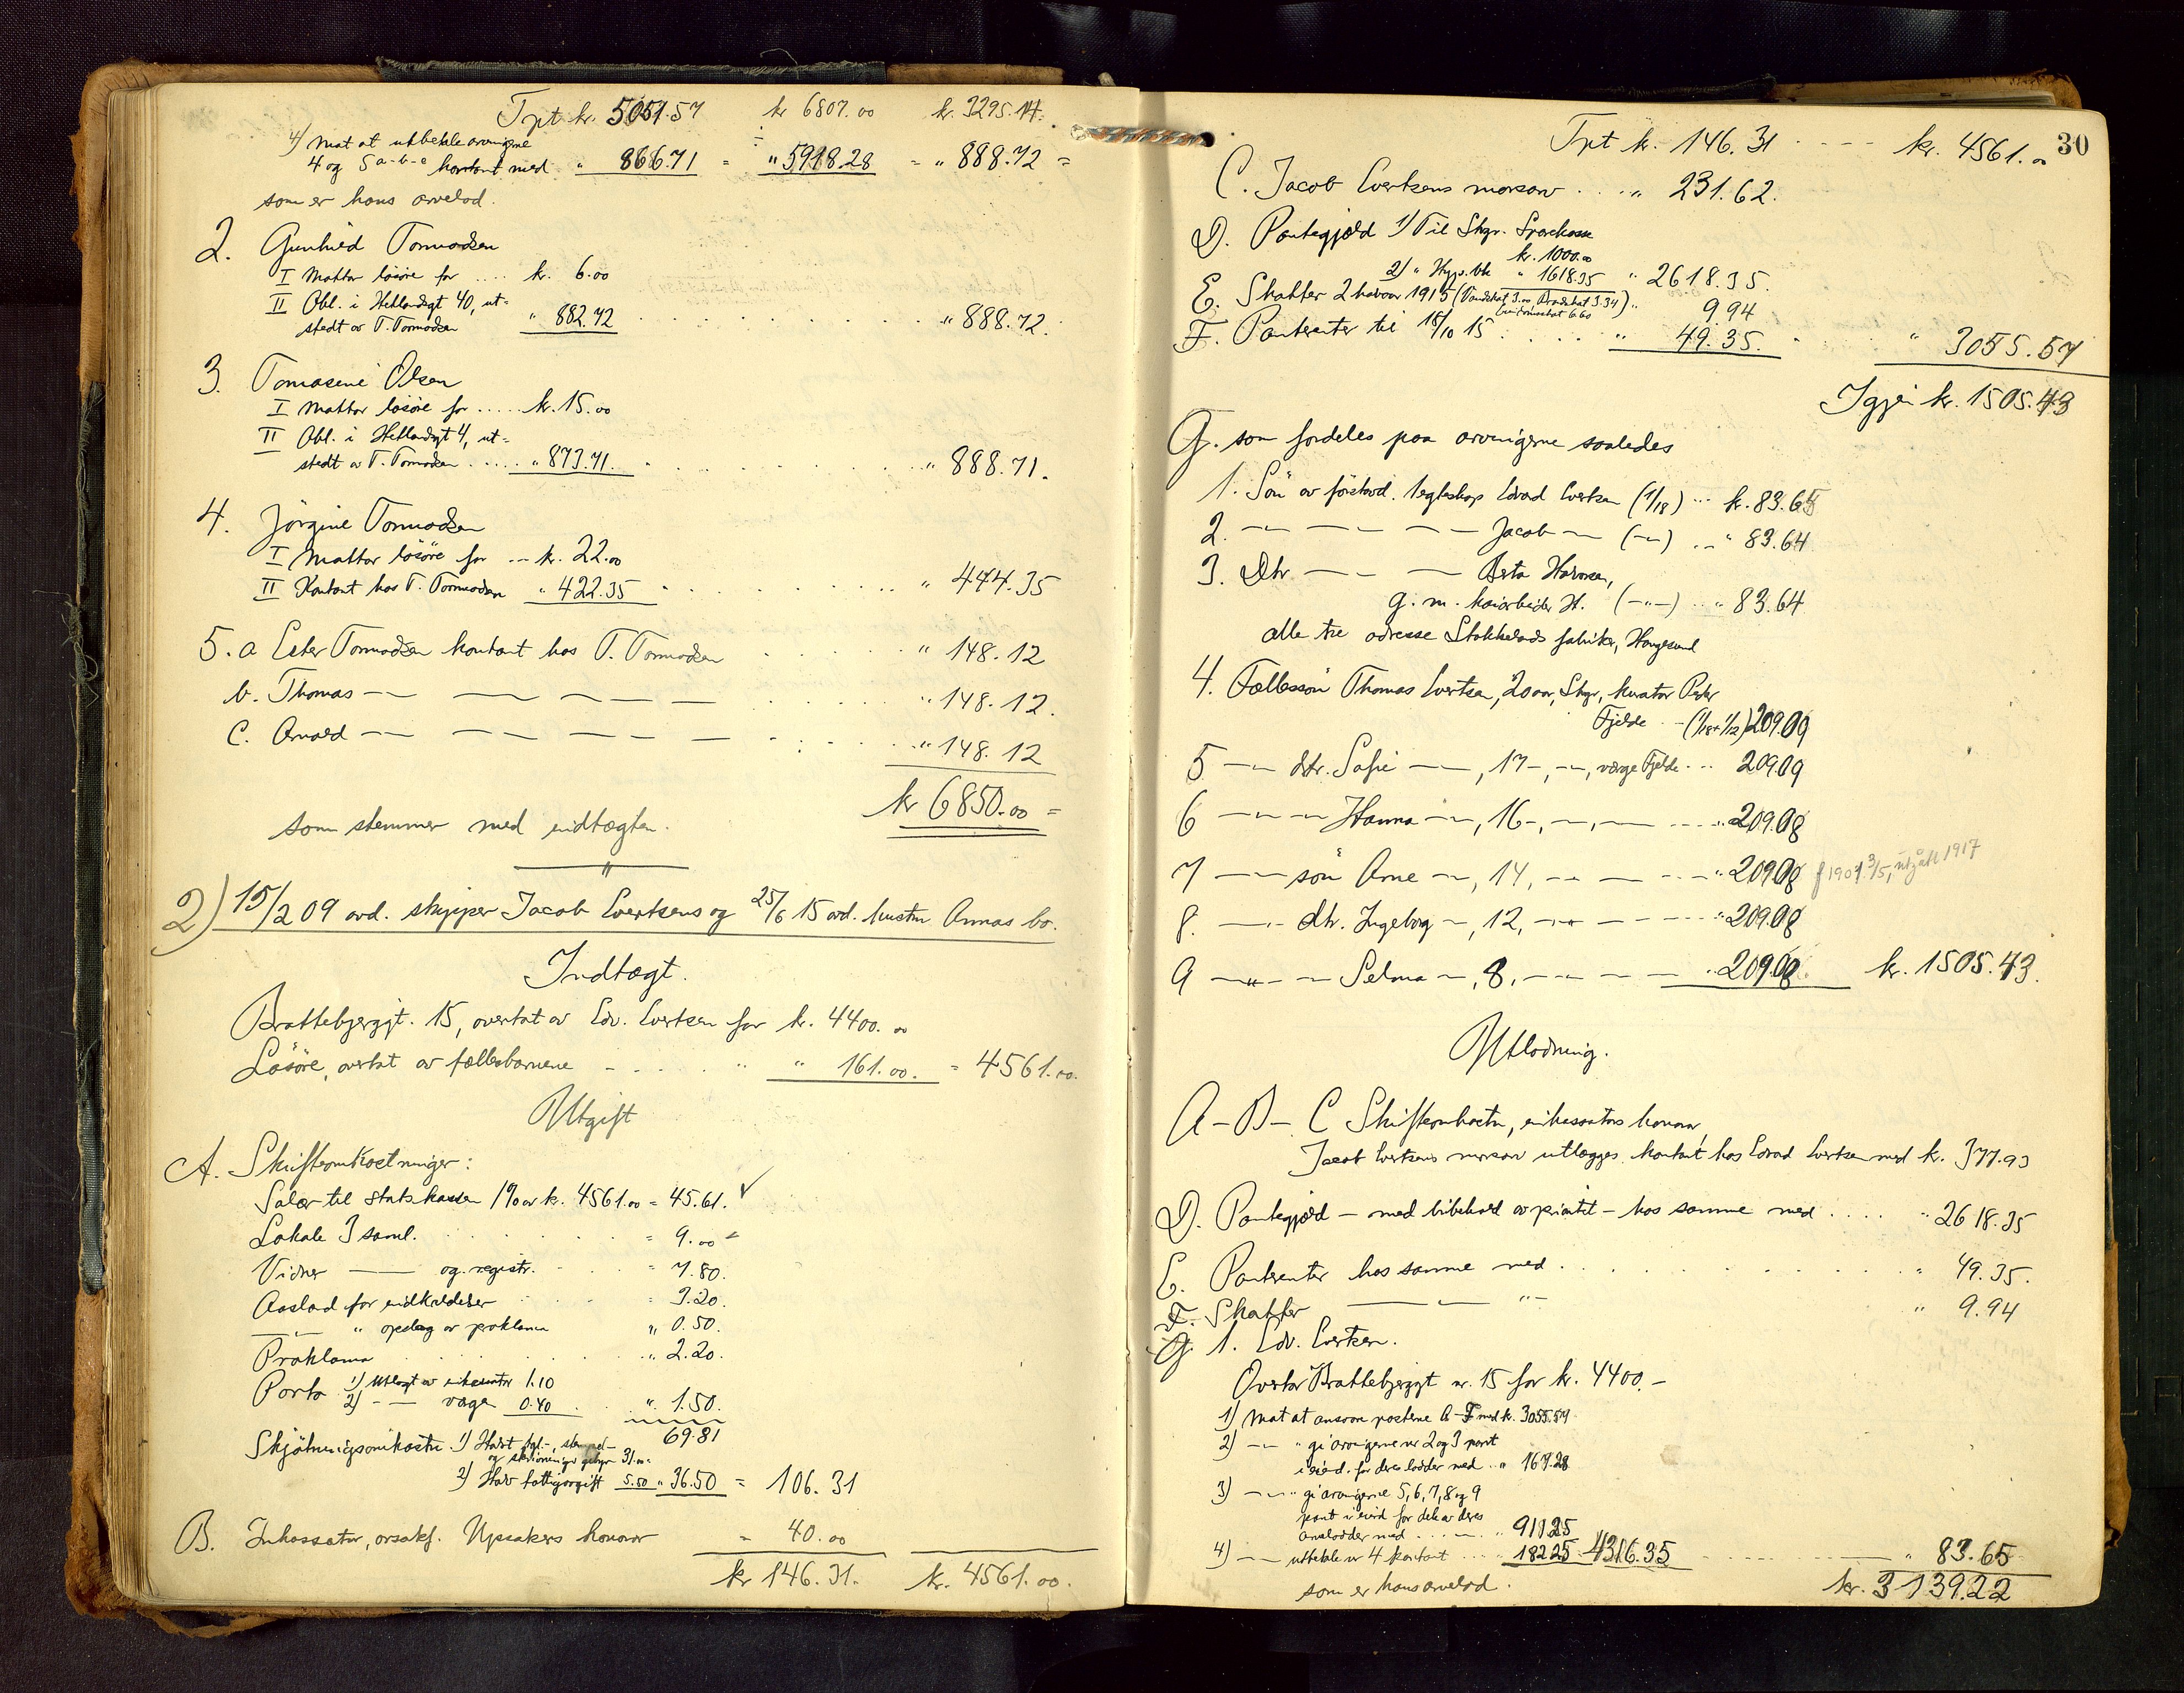 Tpt kr. 5051.57 kr 6807.00 kr. 3295.14.
4) mot at utbetale arvingerne
4 og 5 a-b-c kontant med " 866.71 = " 5918.28 = " 888.72 =
som er hans arvelod.
2. Gunhild Tormodsen
I Mottar løsöre for .... kr. 6.00
II Obl. i Hetlandsgt 40, ut=
stedt av T. Tormodsen " 882.72 . . . . " 888.72.
3. Tomasine Olsen
I Mottar løsöre for ..... kr. 15.00
II Obl. i Hetlandsgt 4, ut=
stedt av T. Tormodsen ..... " 873.71. . . . . " 888.71.
4. Jörgine Tormodsen
I Mottar løsöre for ... kr. 22.00
II Kontant hos T. Tormodsen " 422.35 . . . . " 444.35
5. a Ester Tormodsen kontant hos T. Tormodsen . . . . " 148.12
b. Thomas —"— — — — — . . . . " 148.12.
c. Arnold —"— — — — — — . . . . " 148.12
kr 6850.00 =
som stemmer med indtægten.
2) 15/2 09 avd. skipper Jacob Evertsens og 25/6 15 avd. hustru Annas bo.
Indtægt.
Brattebjerggt. 15, overtat av Edv. Evertsen for kr. 4400.00
Løsöre, overtat av fællesbarnene - . . . . " " 161.00. = 4561.00.
Utgift
A. Skifteomkostninger:
Salær til statskassen 1% av kr. 4561.00 = 45.61. ✓
Lokale 3 saml. . . . . = 9.00 =
Vidner —— og registr. . . . = 7.80.
Avslad for indkaldelser . . = 3.20.
—"— " opslag av proklama " 0.50.
Proklama . . . . " 2.20.
Porto 1) Utlagt av inkassator 1.10
2) —"— værge 0.40 . . " 1.50.
69.81
Skjötningsomkostn. 1) Halvt tgl.-, stempel-
og skjötnings gebyr 31.00=
2) Halv fattigavgift 5.50 " 36.50 = 106.31
B. Inkassator, orsakf. Upsakers honorar = 40.00
kr 146.31. kr. 4561.00.
30
Tpt kr. 146.31 - - - - kr. 4561.00
C. Jacob Evertsens morsarv . . . " 231.62.
D. Pantegjæld 1) Til Skgr. Sparekasse
kr. 1000.00
2) " Hyp.bk " 1618.35 " 2618.35.
E. Skatter 2 halvaar 1915 (Vandskat 3.00 Brandskat 3.34) " 9.94
F. Panterenter til 15/10 15 . . . . " 49.35. . . . . " 3055.57
Igjen kr. 1505.43
G. som fordeles paa arvingerne saaledes
1. Sön av förstavd. 1 egteskap Edvard Evertsen (1/18) ... kr. 83.65
2. —"— — — — Jacob —"— (—"—) .. " 83.64
3. Dtr —"— — — Berta Halvorsen,
g. m. havarbeider H. (—"—) ... " 83.64
alle tre adresse Stokkelands fabriker, Haugesund
4. Fællessön Thomas Evertsen, 20 aar, Skgr, kurator Peder
Fjelde - - (1/18+1/12) 209.09
5 —"— dtr. Sofie —"—, 17 -, —"—, værge Fjelde ... 209.09
6 —"— — Hanna —"—, 16 -, —"—, —— .... " 209.08
7 —"— sön Arne —"—, 14, —"— — - - - " 209.08 f 1901 3/5, utgått 1917
8. —"— dtr. Ingeborg —, 12, —"— — - - - " 209.08
9 —"— — Selma —, 8, —"— — — . 209.08 kr. 1505.43.
Utlodning.
A - B - C Skifteomkostn, inkassators honorar,
Jacob Evertsens morsarv utlægges kontant hos Edvard Evertsen med kr. 377.93
D. Pantegjæld - med bibehold av prioritet - hos samme med . . . . " 2618.35
E. Panterenter hos samme med . . . . " 49.35.
F. Skatter —— — "— " 9.94
G. 1. Edv. Evertsen.
Overtar Brattebjerggt nr. 15 for kr. 4400.-
1) mot at ansvare posterne A-F med kr. 3055.57
2) —"— " gi arvingerne nr 2 og 3 pant
i eiend. for deres lodder med .. " 167.28
3) —"— " gi arvingerne 5, 6, 7, 8 og 9
pant i eiend for del av deres
arvelodder med . . . . " 911.25
4) —"— utbetale nr 4 kontant .... 182.25 4316.35 - - - - " 83.65
som er hans arvelod. kr. 3139.22